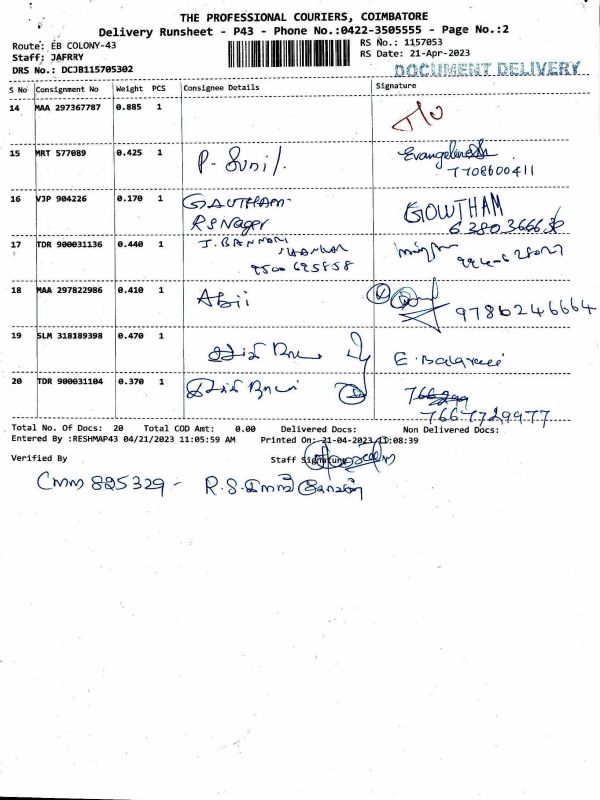 THE PROFESSIONAL COURIERS, COIMBATORE
Delivery Runsheet - P43 - Phone No.:0422-3505555 - Page No.:2
Route: EB COLONY-43
RS No.: 1157053
Staff: JAFRRY
RS Date: 21-Apr-2023
DRS No.: DCJB115705302
DOCUMENT DELIVERY
S No Consignment No Weight PCS Consignee Details Signature
14 MAA 297367787 0.885 1
15 MRT 577089 0.425 1 P. Sunil. Evangeline
7708600411
16 VJP 904226 0.170 1 GAUTHAM GOWTHAM
RS Nager
17 TDR 900031136 0.440 1 J.
9500 625858
18 MAA 297822986 0.410 1 Abii
9786246664
19 SLM 318189398 0.470 1 E.
20 TDR 900031104 0.370 1
7667729977
Total No. Of Docs: 20 Total COD Amt: 0.00 Delivered Docs: Non Delivered Docs:
Entered By :RESHMAP43 04/21/2023 11:05:59 AM Printed On: 21-04-2023 11:08:39
Verified By Staff Signature
CMM 825329 - R.S.